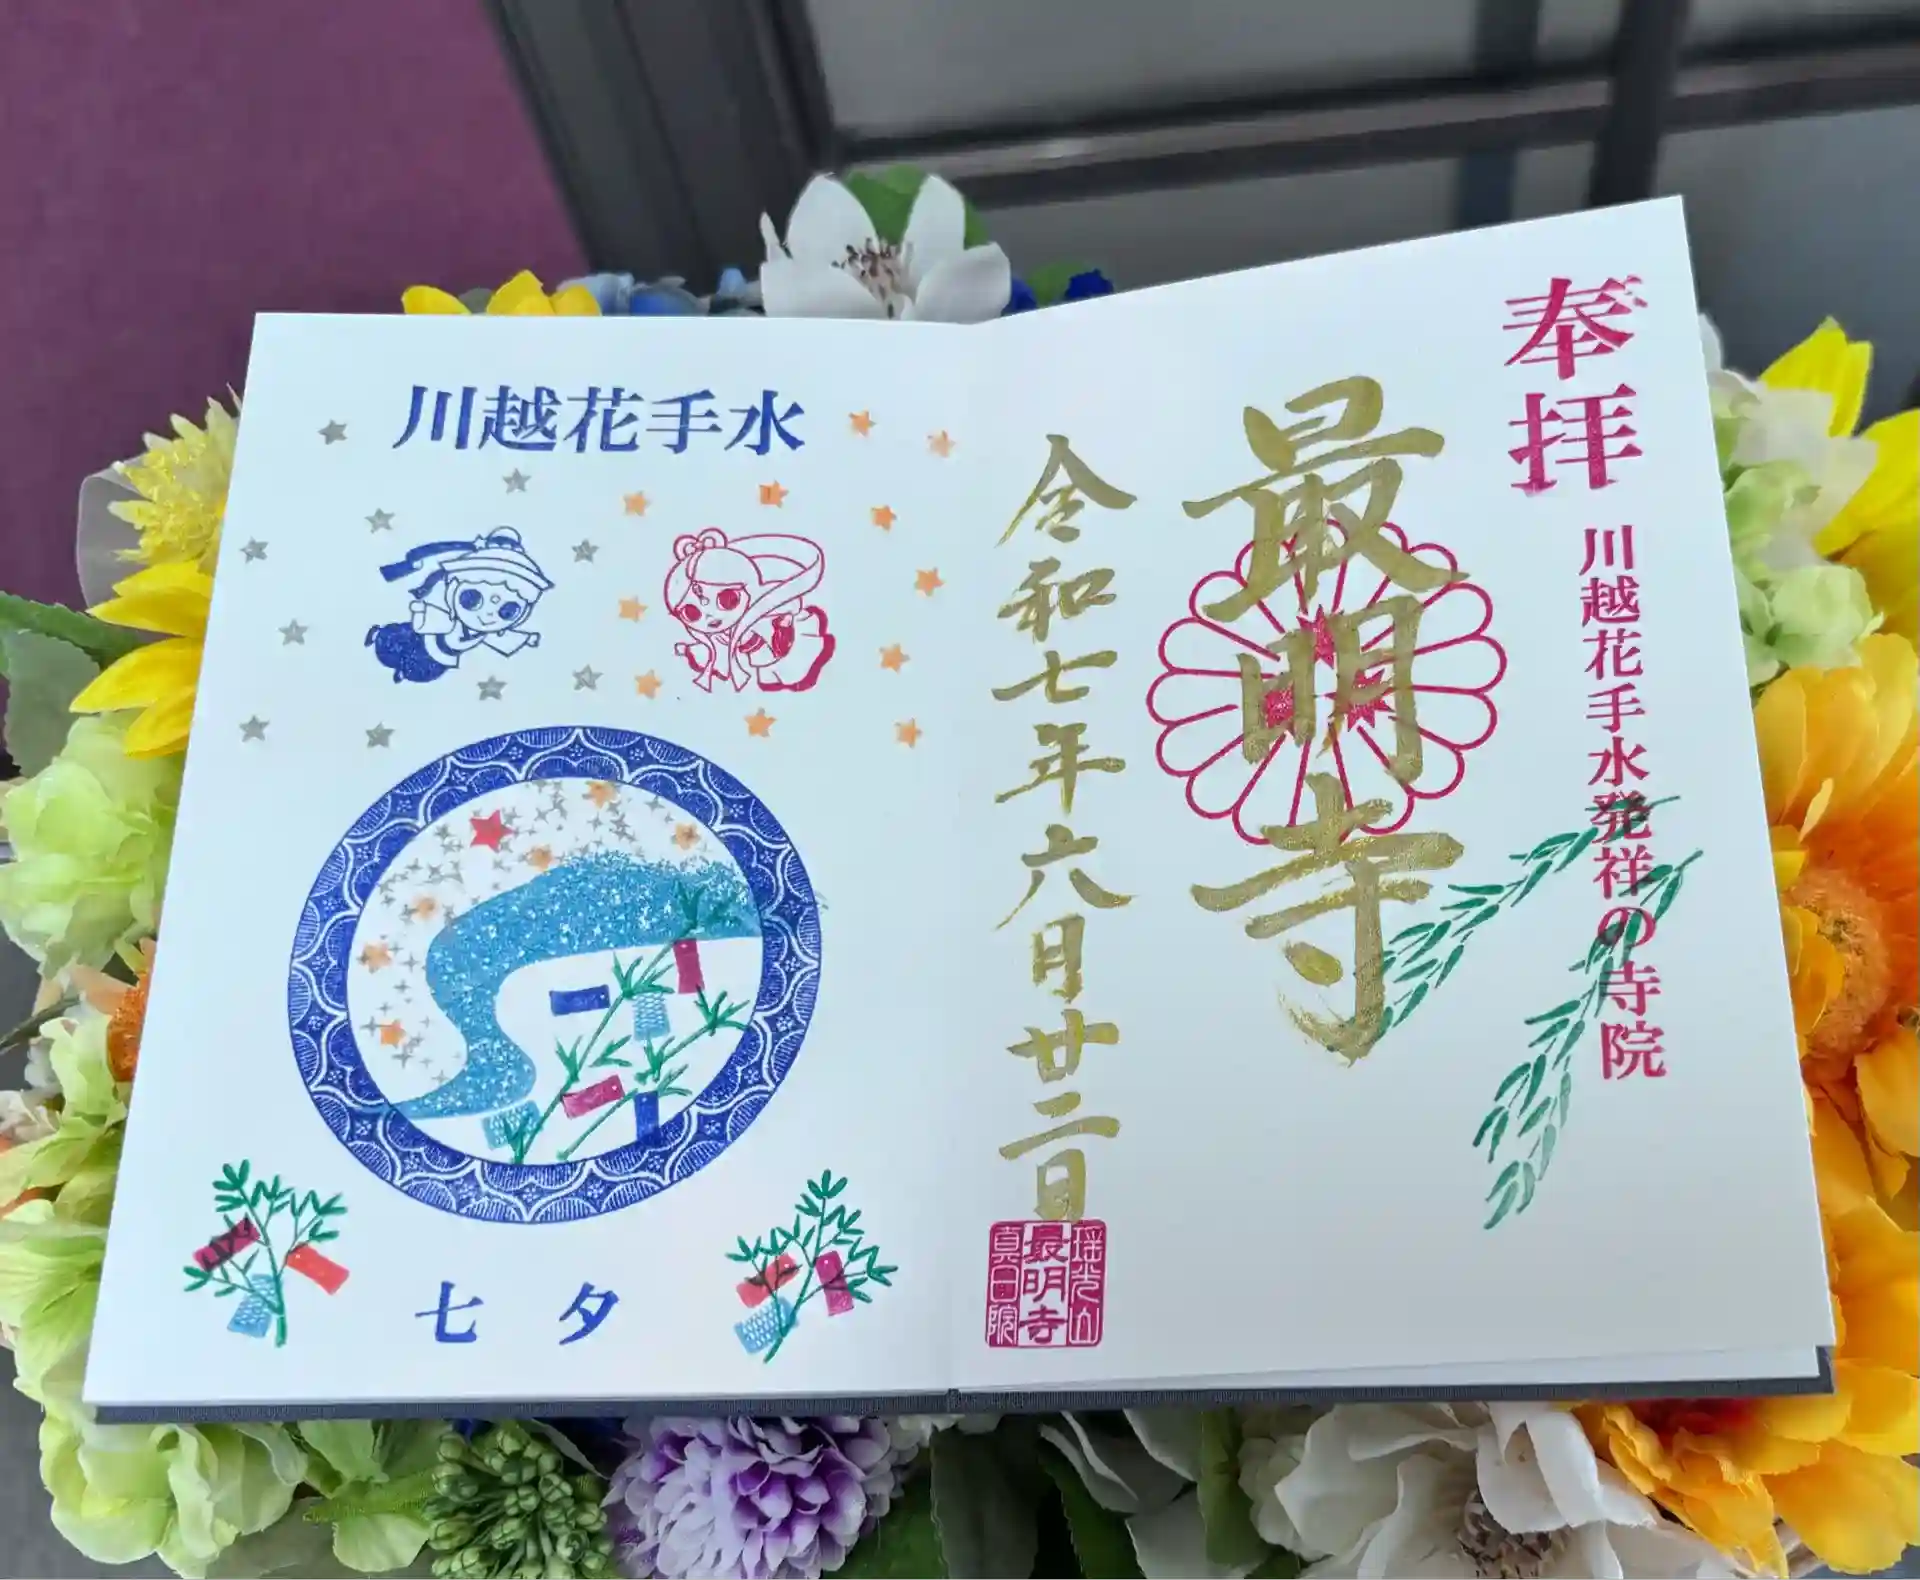 奉拝
川越花手水発祥の寺院
最明寺
令和七年六月廿二日
瑶光山
最明寺
真日院
川越花手水
七夕